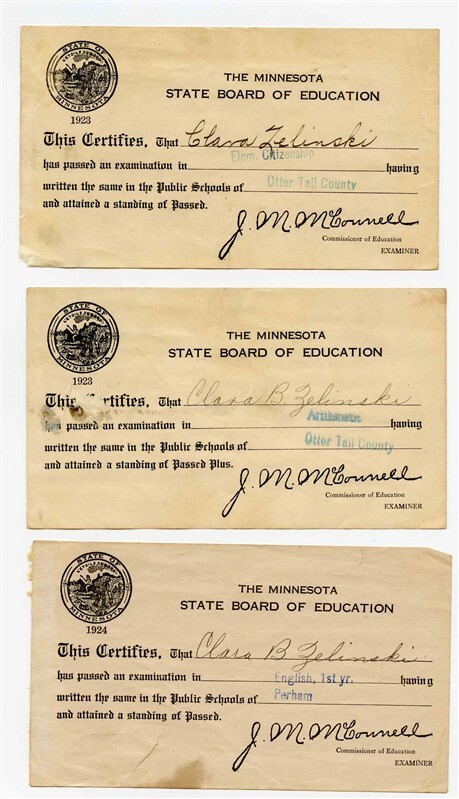 STATE OF
MINNESOTA
1923
THE MINNESOTA
STATE BOARD OF EDUCATION
This Certifies, That Clara Zelinski
has passed an examination in Elem. Citizenship having
written the same in the Public Schools of Otter Tail County
and attained a standing of Passed.
J. M. McConnell
Commissioner of Education
EXAMINER
STATE OF
MINNESOTA
1923
THE MINNESOTA
STATE BOARD OF EDUCATION
This Certifies, That Clara B Zelinski
has passed an examination in Arithmetic having
written the same in the Public Schools of Otter Tail County
and attained a standing of Passed Plus.
J. M. McConnell
Commissioner of Education
EXAMINER
STATE OF
MINNESOTA
1924
THE MINNESOTA
STATE BOARD OF EDUCATION
This Certifies, That Clara B Zelinski
has passed an examination in English, 1st yr. having
written the same in the Public Schools of Perham
and attained a standing of Passed.
J. M. McConnell
Commissioner of Education
EXAMINER